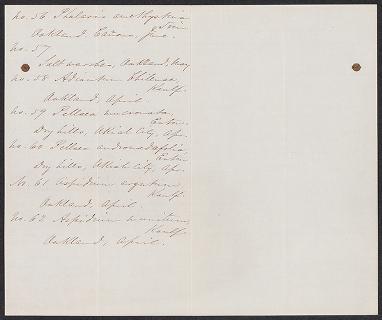 no. 56 Phalaris amethystina
Trin
Oakland, Cañons, June.
no. 57
Salt marshes, Oakland, May
no. 58 Adiantum Chilense,
Kaulf.
Oakland, April.
no. 59 Pellaea mucronata,
Eaton.
Dry hills, Ukiah City, Ap.
no. 60 Pellaea andromedaefolia
Eaton
Dry hills, Ukiah City, Ap.
No. 61 Aspidium argutum,
Kaulf.
Oakland, April.
no. 62 Aspidium munitum,
Kaulf.
Oakland, April.